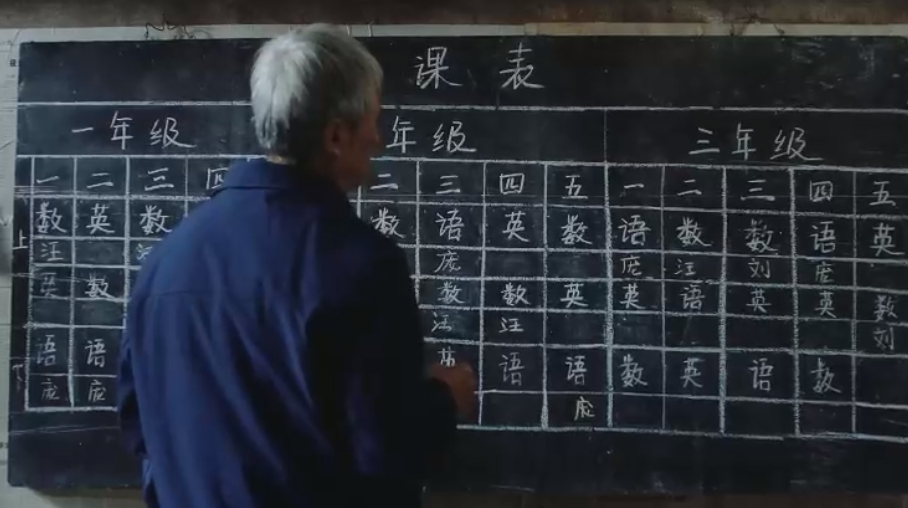 课 表
一年级 年级 三年级
一 二 三 四 二 三 四 五 一 二 三 四 五
数 英 数 数 语 英 数 语 数 数 语 英
上 汪 庞 庞 汪 刘 庞
英 数 数 数 英 英 语 英 英 数
汪 汪 刘
语 语 英 语 语 数 英 语 数
下 庞 庞 庞